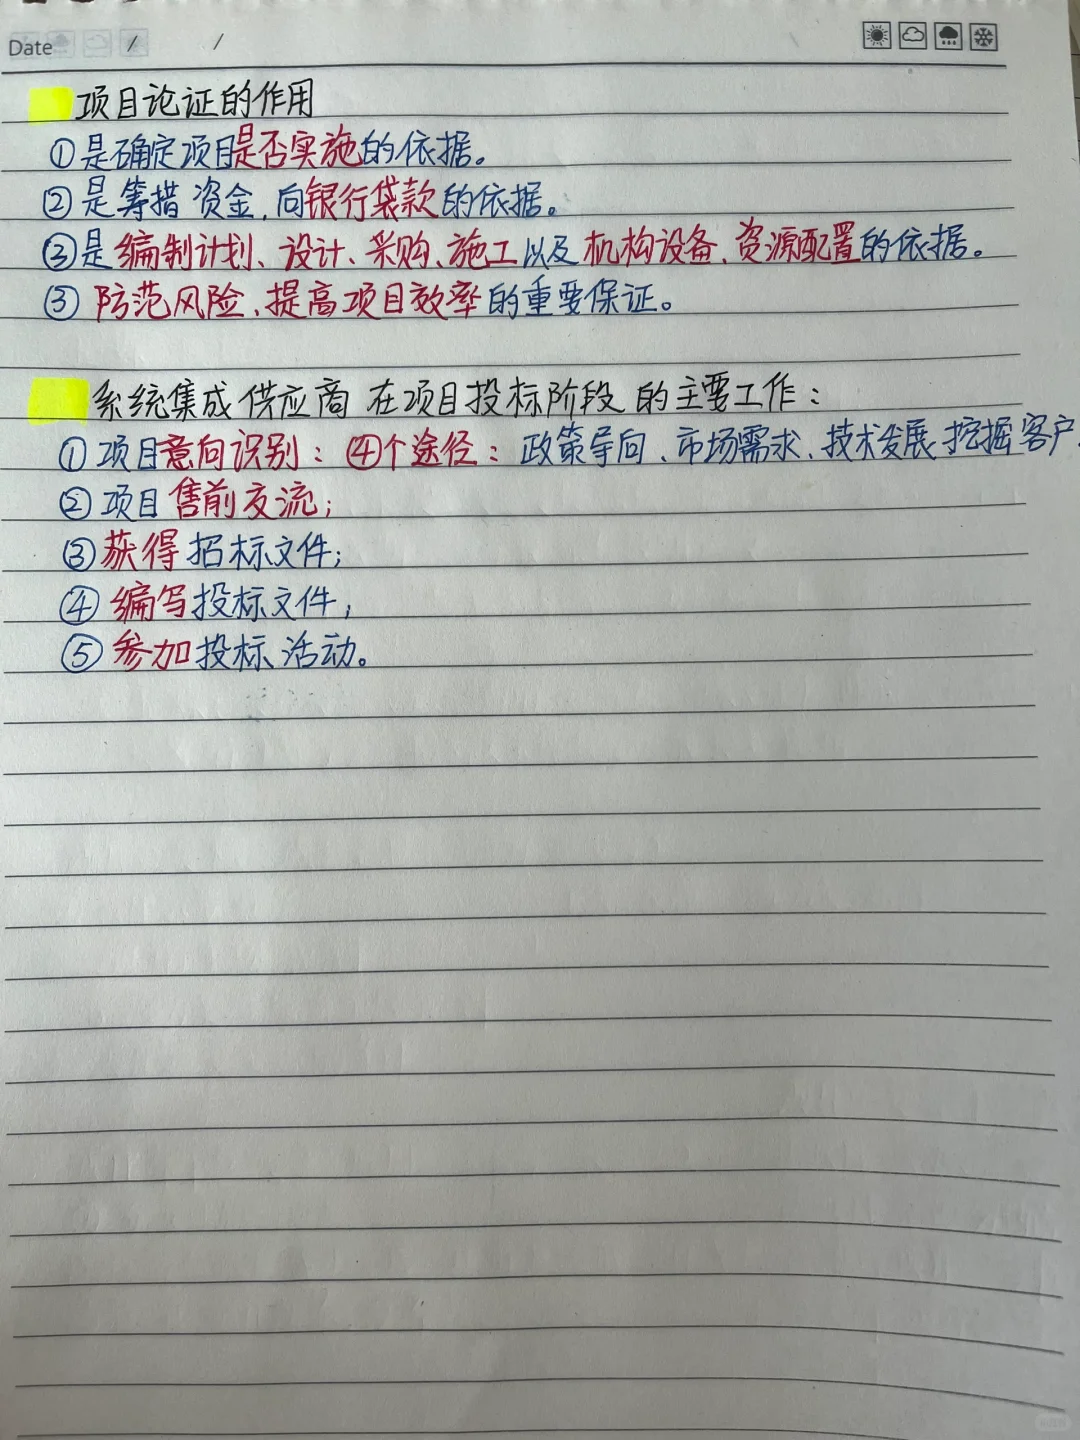 Date / /
项目论证的作用
①是确定项目是否实施的依据。
②是筹措资金,向银行袋款的依据。
③是编制计划、设计、采购、施工以及机构设备、资源配置的依据。
③防范风险、提高项目效率的重要保证。
系统集成供应商在项目投标阶段的主要工作:
①项目意向识别:④个途径:政策导向、市场需求、技术发展挖掘客户
②项目售前交流;
③获得招标文件;
④编写投标文件;
⑤参加投标活动。